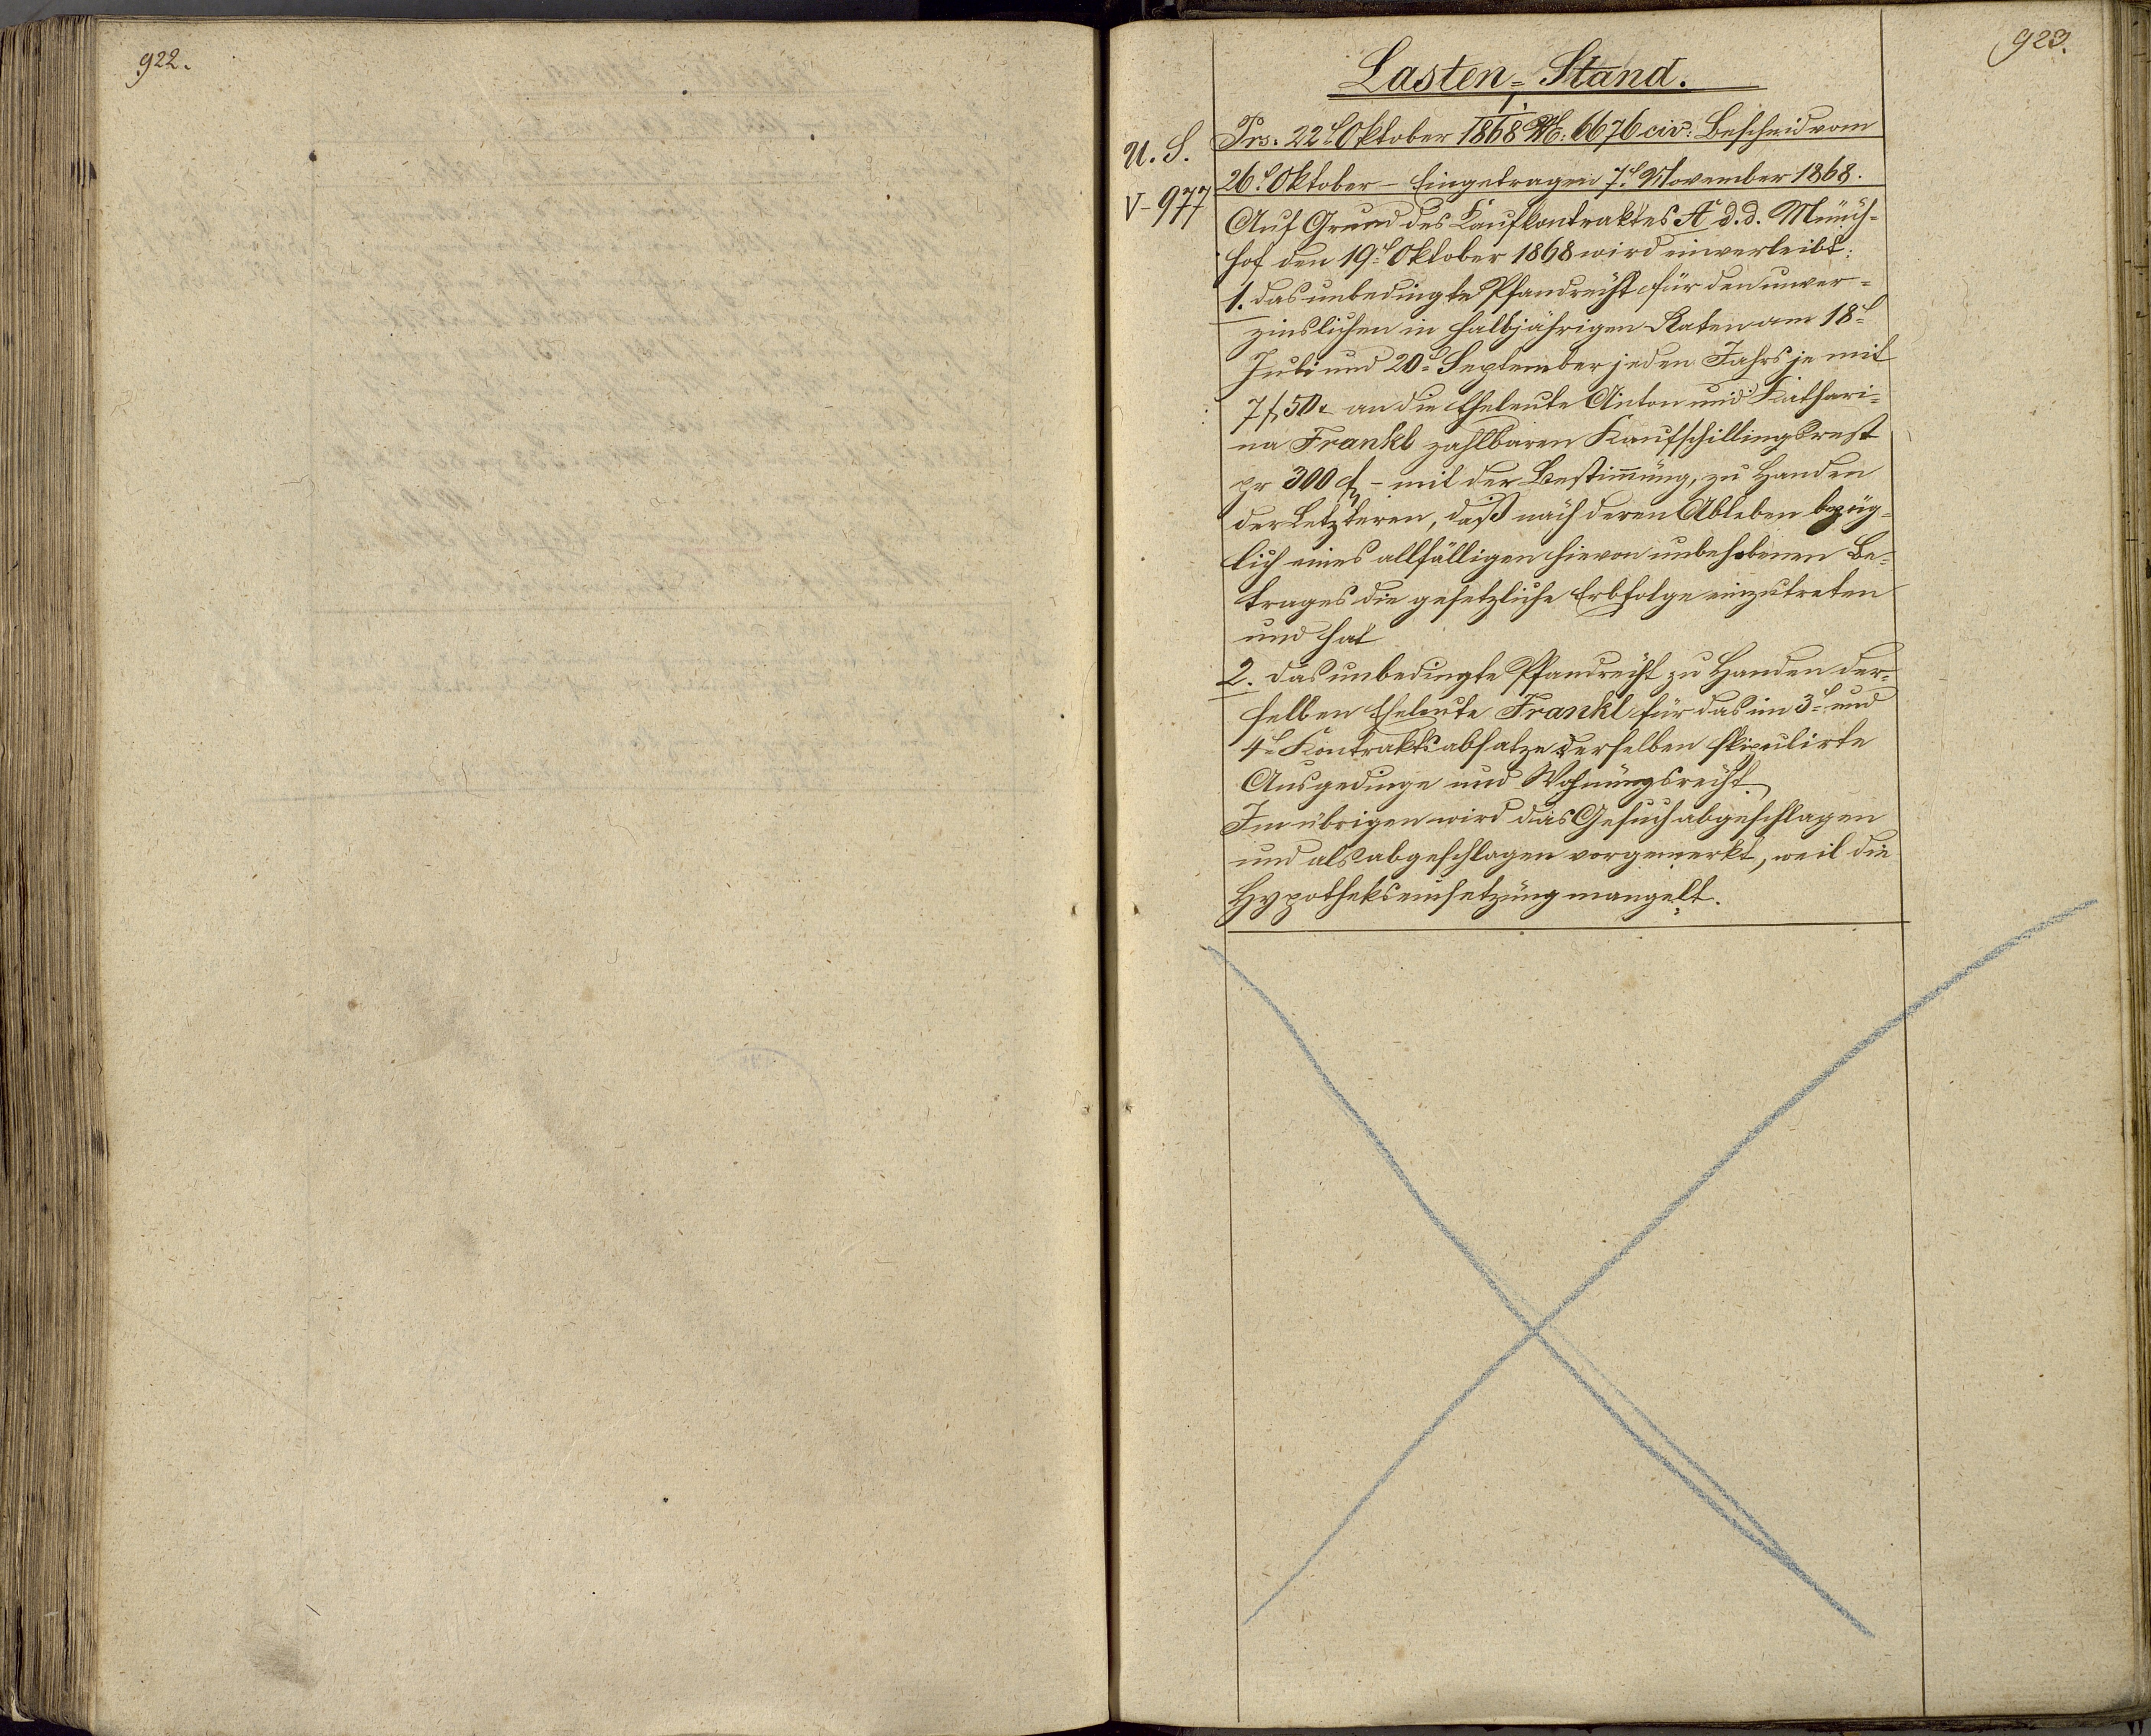 922.
923.
Lasten-Stand.
I.
U. S.
V-977
Prs. 22t Oktober 1868 N: 6676 civ: Bescheid vom
26t Oktober - Eingetragen 7t November 1868.
Auf Grund des Kaufkontraktes A d. d. Münch-
hof den 19t Oktober 1868 wird einverleibt:
1. das unbedingte Pfandrecht für den unver-
zinslichen in halbjährigen Raten am 18t
Juli und 20t September jeden Jahrs je mit
7 f 50 x an die Eheleute Anton und Kathari-
na Frankl zahlbaren Kaufschillingsrest
pr 300 f - mit der Bestimmung, zu Handen
der Letzteren, daß nach deren Ableben bezüg-
lich eines allfälligen hievon unbehobenen Be-
trages die gesetzliche Erbfolge einzutreten
und hat
2. das unbedingte Pfandrecht zu Handen der-
selben Eheleute Frankl für das im 3t und
4t Kontraktsabsatze derselben stipulirte
Ausgedinge und Wohnungsrecht.
Im übrigen wird das Gesuch abgeschlagen
und als abgeschlagen vorgemerkt, weil die
Hypothekseinsetzung mangelt.